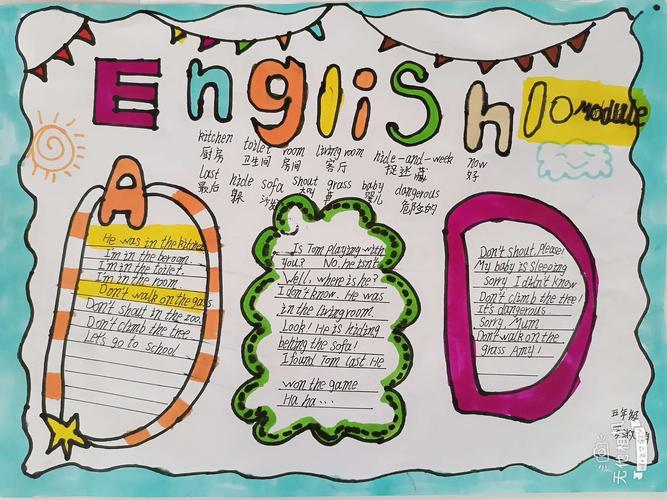 English
10 Module
kitchen toilet room living room hide-and-week now
厨房 卫生间 房间 客厅 捉迷藏 好
last hide sofa shout grass baby dangerous
最后 躲 沙发 大叫 草 婴儿 危险的
A
He was in the kitchen
I'm in the beroon.
I'm in the toilet.
I'm in the room
Don't walk on the gass.
Don't shout in the zoo.
Don't climb the tree
Let's go to school
Is Tom playing with
you? No. he isn't
Well, where is he?
I don't know. He was
in the living room.
Look! He is hiding
behing the sofa!
I found Tom last He
won the game
Ha ha...
D
Don't shout, Please!
My baby is sleeping
Sorry I didn't know
Don't climb the tree!
It's dangerous.
Sorry, Mum
Don't walk on the
grass Amy!
五年级
无他相机